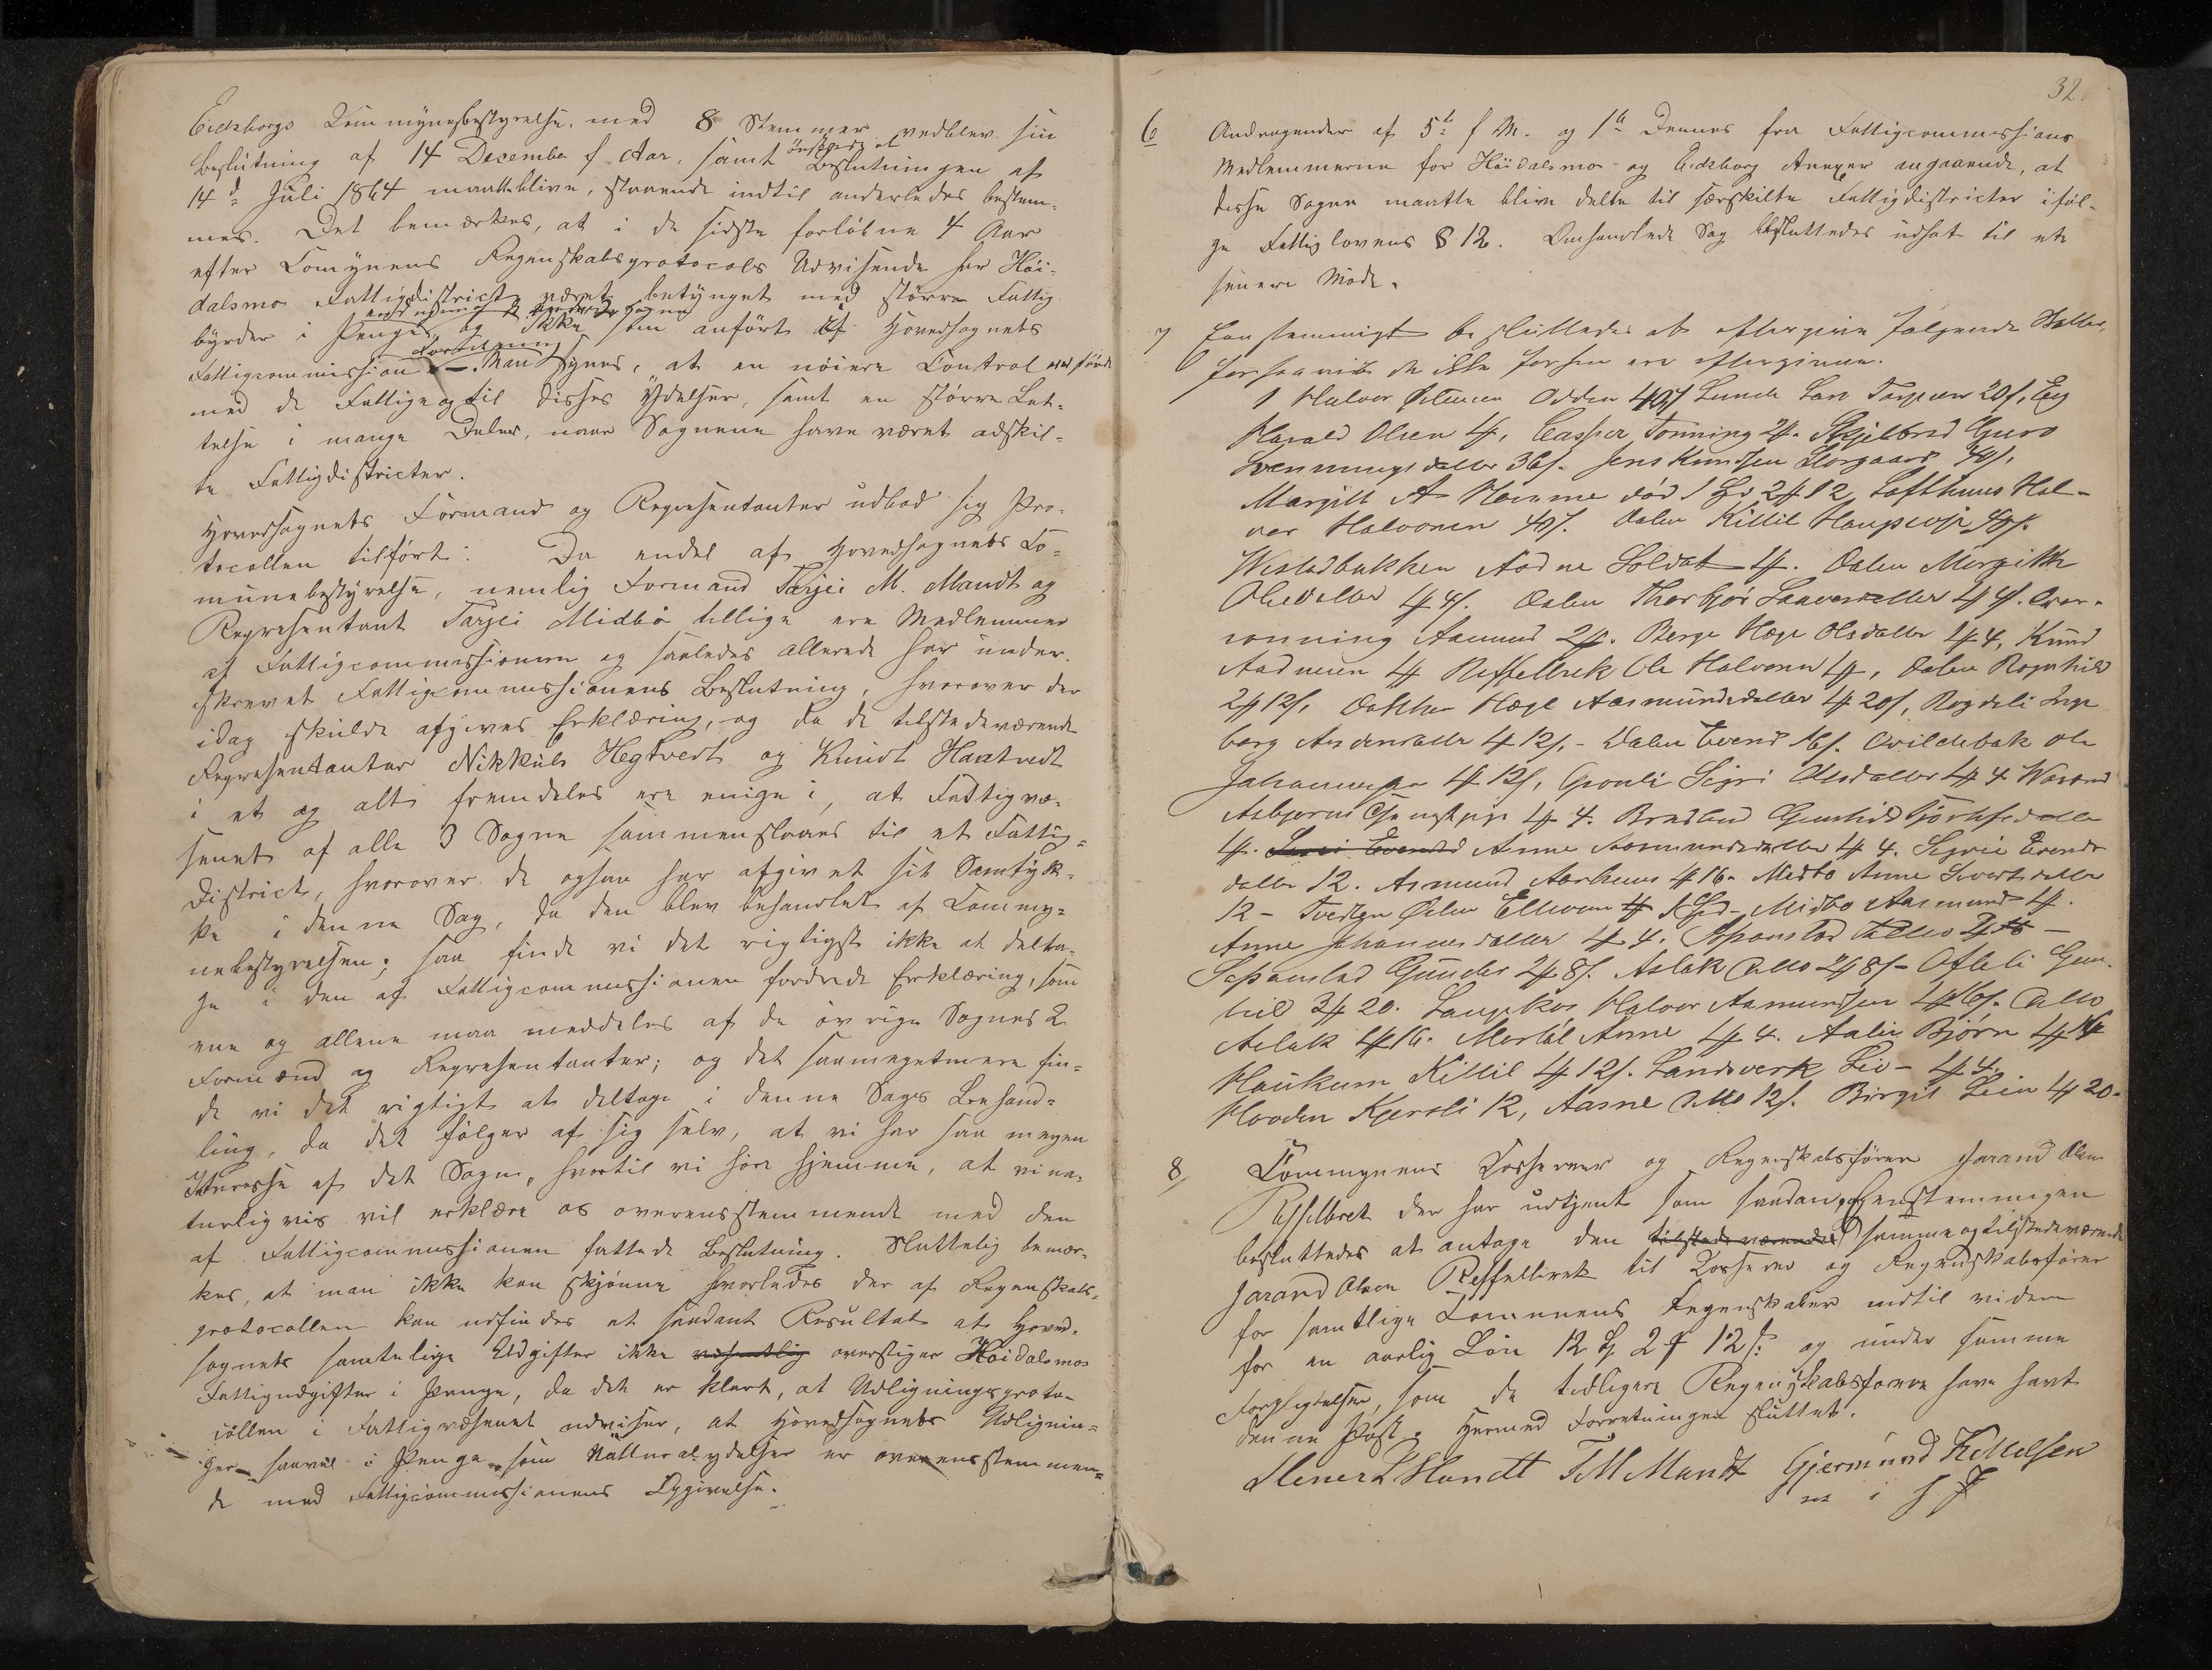 Eidsborgs Kommynesbestyrelse, med 8 Stemmer vedblev sin
Beslutning af 14 Decembe f Aar, samt ønskede at Beslutningen af
14d Juli 1864 maatte blive, staaende indtil anderledes bestem-
mes. Det bemærkes, at i de sidste forløbne 4 Aar
efter Comynens Regnskabsprotocols Udvisende har Høi-
dalsmo Fattigdistrict været betynget med større Fattig
byrder i Penge, og ikke som anført af Hovedsognets
Fattigcommission. Man synes, at en nøiere Control
med de Fattige og til disses Ydelser, samt en større Let-
telse i mange Dele, naar Sognene have været adskil-
te Fattigdistricter.
Hovedsognets Formand og Representanter udbad sig Pro-
tocollen tilført: Da endel af Hovedsognets Co-
munebestyrelse, nemlig Formand Tarjei M. Mandt og
Representant Tarjei Midbø tillige ere Medlemmer
af Fattigcommissionen og saaledes allerede har under-
skrevet Fattigcommissionens Beslutning, hvorover der
idag skulde afgives Erklæring, og da de tilstedeværende
Representanter Nikkuls Hegtvedt og Knudt Haatvedt
i et og alt fremdeles ere enige i, at Fattigvæ-
senet af alle 3 Sogne sammenslaaes til et Fattig-
District, hvorover de ogsaa har afgivet sit Samtyk-
ke i denne Sag, da den blev behandlet af Commy-
nebestyrelsen; saa finde vi det rigtigst ikke at delta-
ge i den af Fattigcommissionen fordrede Erklæring, som
ene og allene maa meddeles af de øvrige Sognes 2
Formænd og Representanter; og det saamegetmere fin-
de vi det rigtigt at deltage i denne Sags Behand-
ling, da det følger af sig selv, at vi har saa megen
Interesse af det Sogn, hvortil vi høre hjemme, at vi na-
turligvis vil erklære os overensstemmende med den
af Fattigcommissionen fattede Beslutning. Sluttelig bemær-
kes, at man ikke kan skjønne hvorledes der af Regnskabs-
protocollen kan udfindes et saadant Resultat at Hoved-
sognets samtelige Udgifter ikke overstiger Høidalsmos
Fattigudgifter i Penge, da det er klart, at Udligningsproto-
collen i Fattigvæsenet udviser, at Hovedsognets Udlignin-
ger saavel i Penge som Natturalydelser er overensstemmen-
de med Fattigcommissionens Opgivelse.
32.
6 Andragender af 5te f M. og 1te Dennes fra Fattigcommissions
Medlemmerne for Høidalsmo og Eidsborg Annexer angaaende, at
disse Sogne maatte blive delte til særskilte Fattigdistricter iføl-
ge Fattiglovens § 12. Omhandlede Sag besluttedes udsat til et
senere Møde.
7 Eenstemmigt besluttedes at eftergive følgende Restler,
forsaavidt de ikke forhen ere eftergivne.
1 Halvor Odden Lunde Lars 20/,
Harald Olsen 4, Casper Tonning 24. Skjelbred Guro
Svenningsdatter 36/. Jens Knudsen Storgaard 40/,
Margitt A Hemme død 1 Spd 2 # 12, Lofthuus Hal-
vor Halvorsen 40/. Dalen Killil 40/.
Vestadbakken Aadne Soldat #. Dalen Margitte
Olsdatter # 4/. Dalen Thorbjør datter # 4/. Over-
rønning Aamund 2#. Berge Hæge Olsdatter # 4, Knud
Aadnesen # Ræffelbrek Ole Halvorsen #, Dalen Ragnhild
2 # 12/, Bakken Hæge Aasmundsdatter # 20/, Rogdeli Inge
borg datter # 12/. - Dalen Evend 16/. Qvildebak Ole
Johannessen # 12/, Grouli Sigri Olsdatter # 4
Asbjørns # 4. Gunhild datter
#. Anne Aasmundsdatter # 4. Sigrie Evends
datter 12. Asmund Aarhuus # 16. Midbø Anne Sivertsdatter
12 - Tvedten 1 Spd - Midbø Aasmund #.
Anne Johannesdatter # 4. Spanstad Ditto
Spanstad Gunder 2# 8/. Aslak Ditto 2# 8/ - Ofteli Gun-
hild 3# 20. Langkos Halvor Aamundsen # 16/. Ditto
Aslak # 16. Anne # 4. Aalie Bjørn #
Haukum Killil # 12/. Landsverk Liv - # 4.
Hovden Kjersti 12, Aasne Ditto 12/. Birgit Lein # 20.
8/ Commynens Casserer og Regnskabsfører Jarand Olsen
Ræffelbrek der har udtjent som saadan, Eenstemmigen
besluttedes at antage den samme og tilstedeværende
Jarand Olsen Ræffelbrek til Casserer og Regnskabsfører
for samtlige Commnens Regnskaber indtil videre
for en aarlig Løn 12 Sp 2 # 12/ og under samme
Forpligtelser, som de tidligere Regnskabsførere have havt
denne Post. Hermed Forretningen sluttet.
Steener L Mandt T M Mandt Gjermund Kittilsen
m i f P